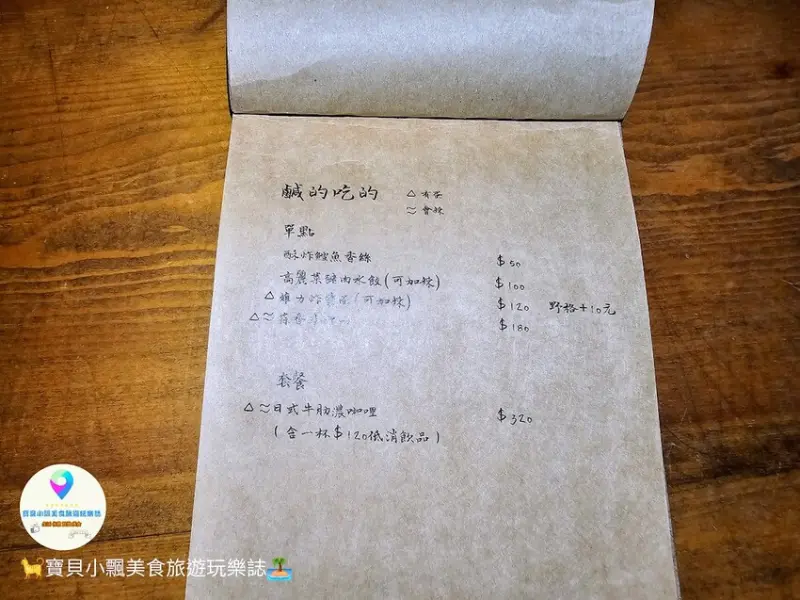 鹹的吃的 △ 有蛋
≈ 會辣
單點
酥炸鱈魚香絲 $50
高麗菜豬肉水餃(可加辣) $100
△ 維力炸醬(可加辣) $120 野格+10元
△≈ $180
套餐
△≈日式牛肋濃咖哩 $320
(含一杯$120低消飲品)
寶貝小飄美食旅遊玩樂誌
寶貝小飄美食旅遊玩樂誌